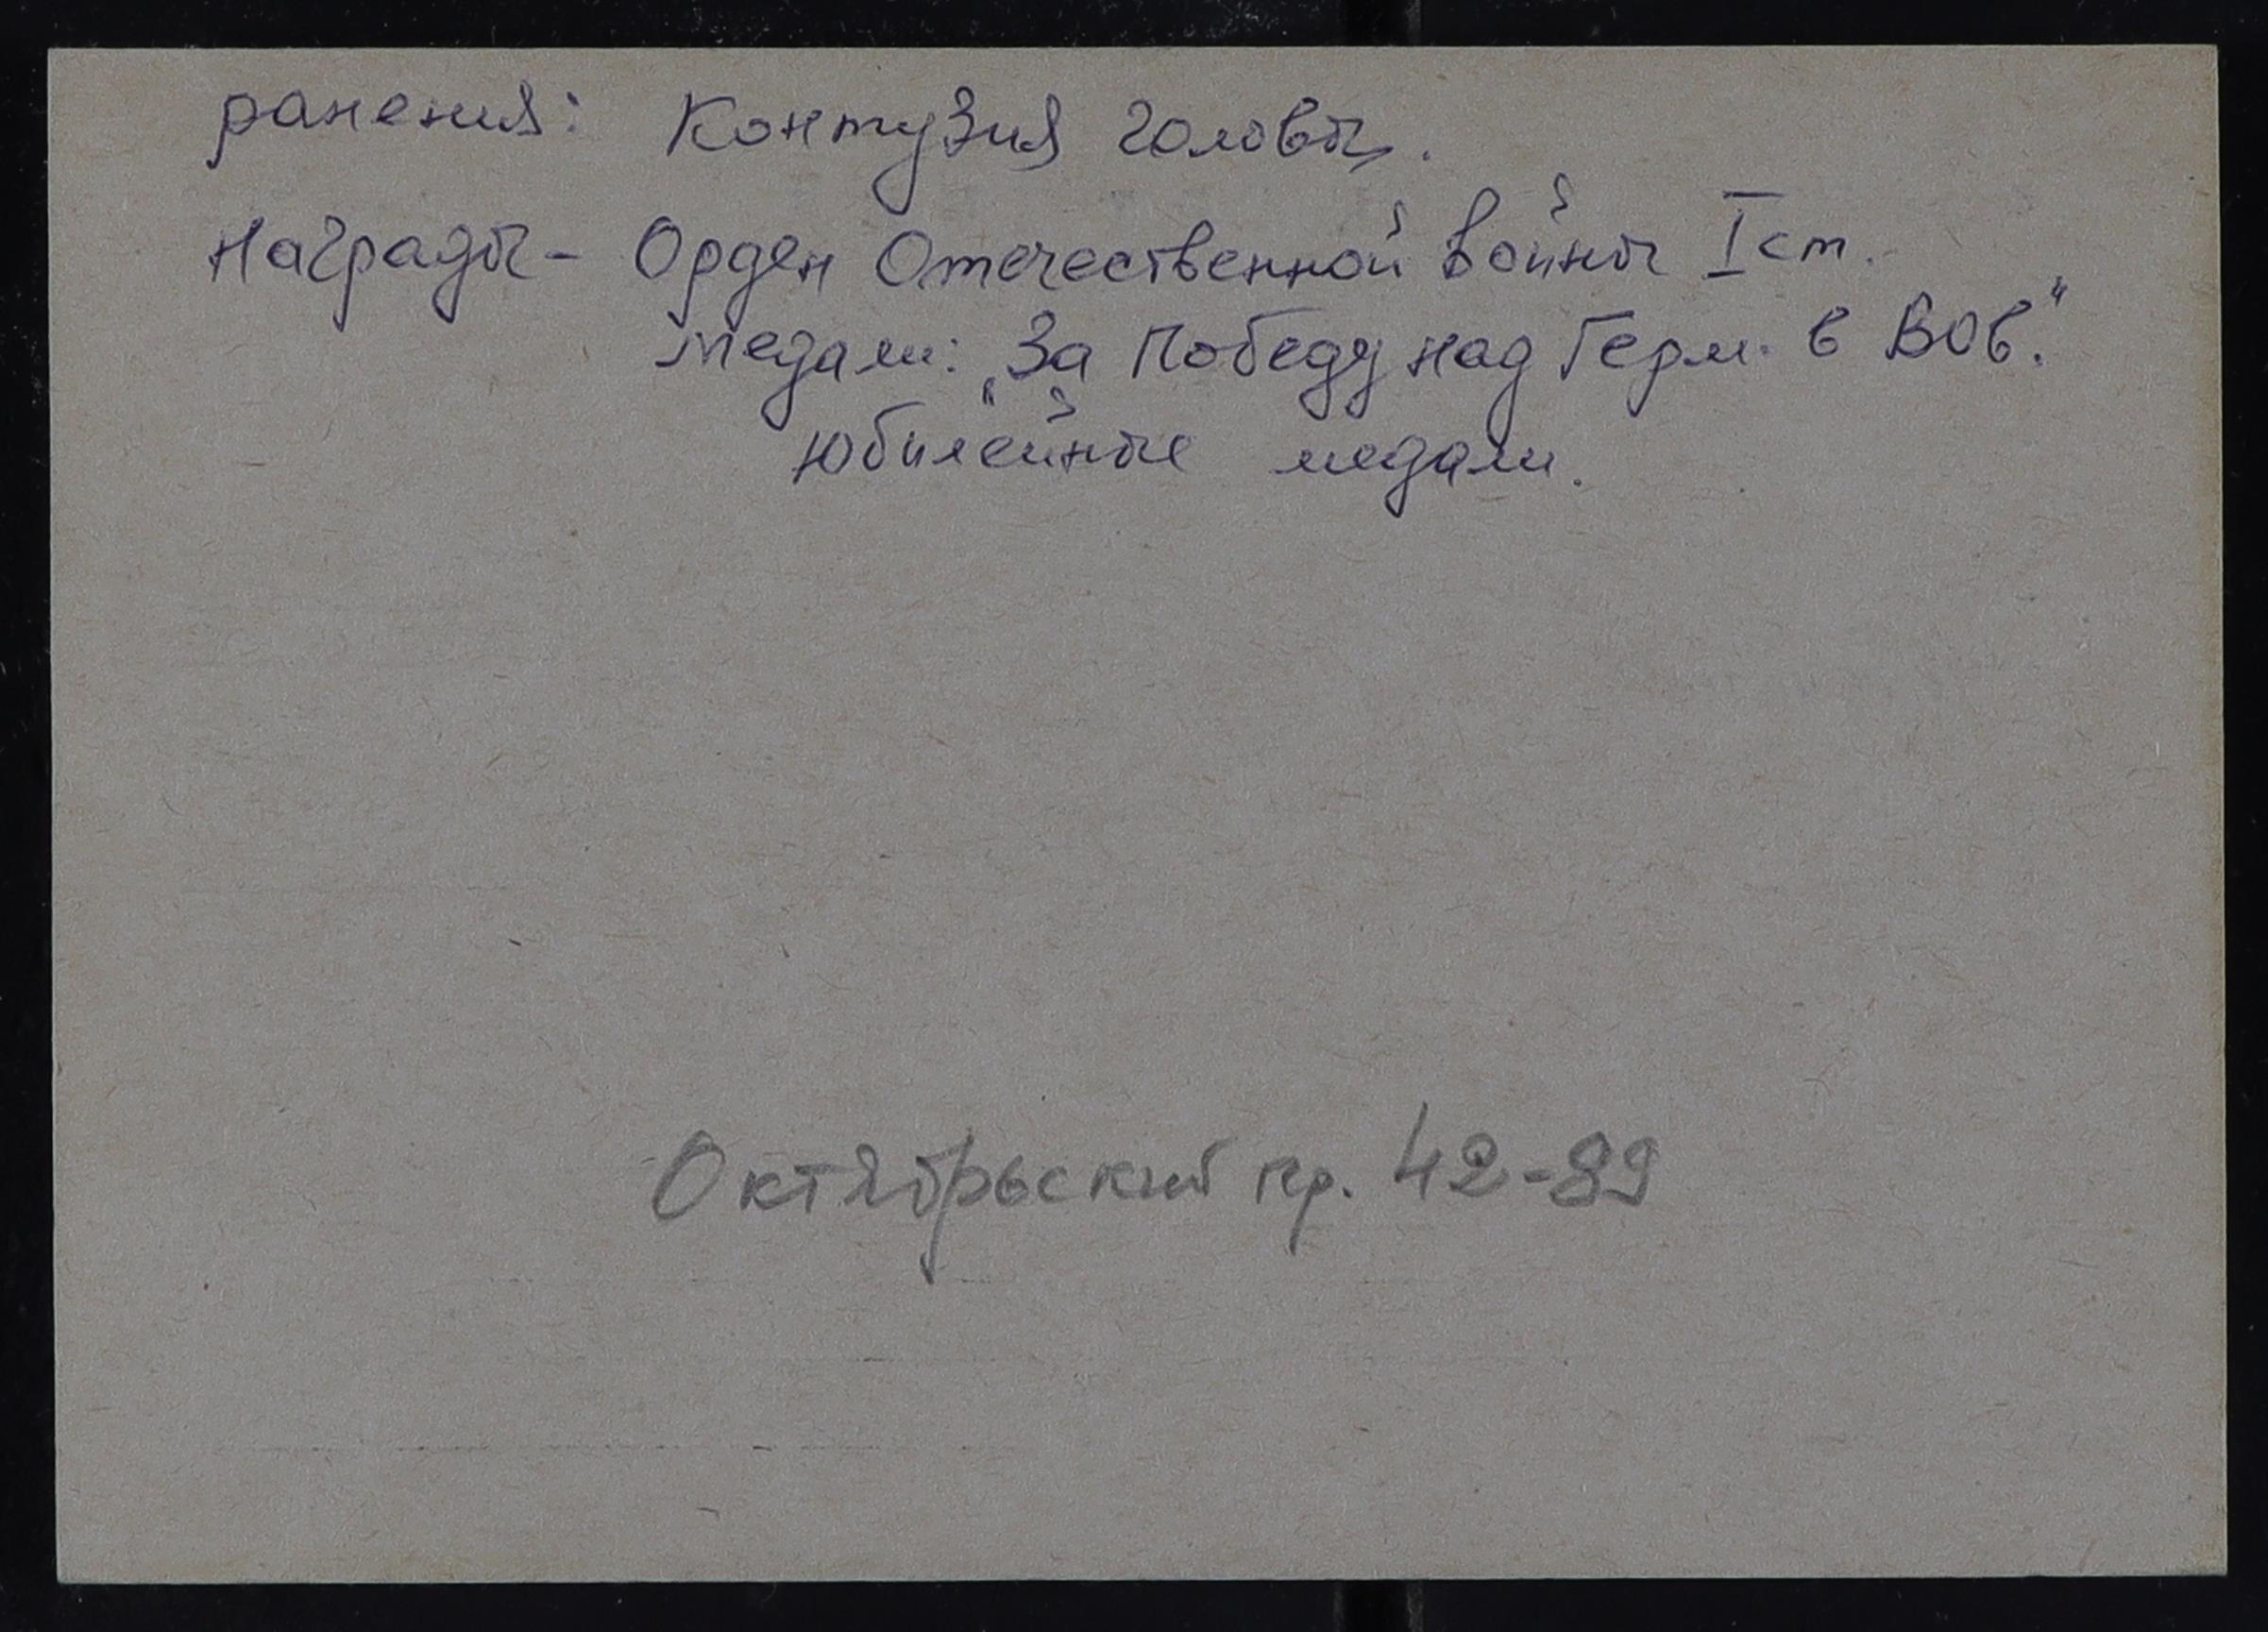 ранения: Контузия головы.
Награды - Орден Отечественной войны I ст.
медали: „За Победу над Герм. в ВОв."
юбилейные медали.
Октябрьский пр. 42-89